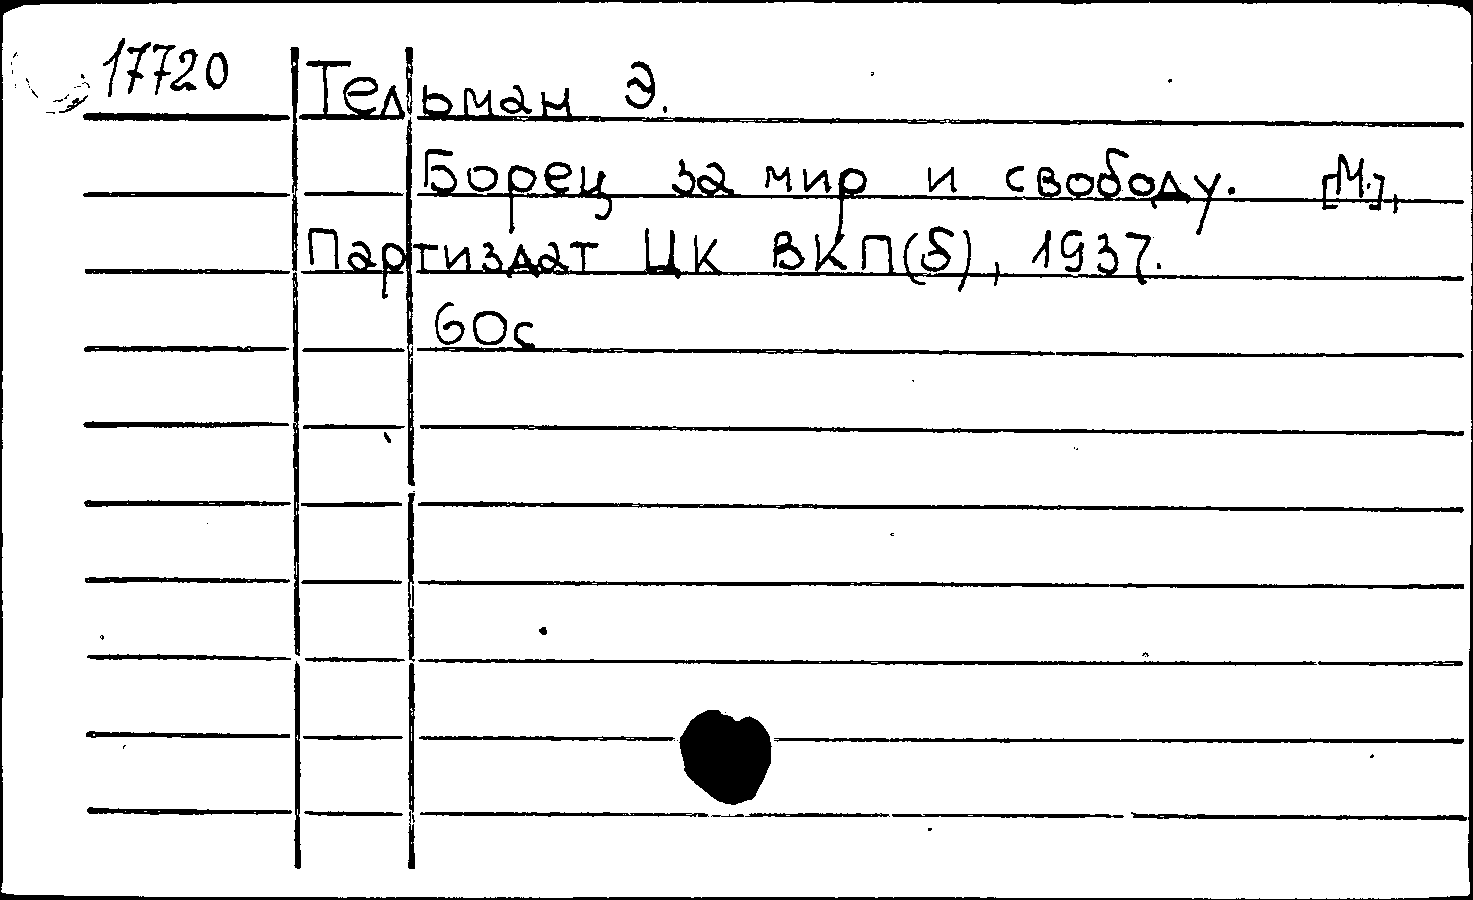 17720 Тельман Э.
Борец за мир и свободу. [М.],
Партиздат ЦК ВКП(б), 1937.
60с